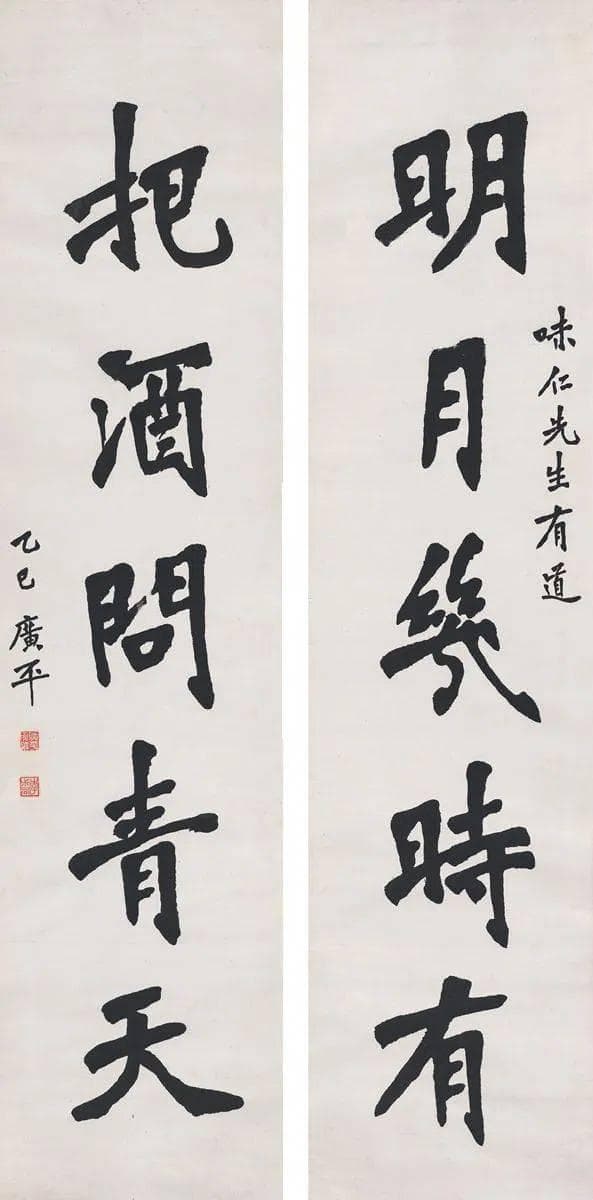 明月幾時有
味仁先生有道
把酒問青天
乙巳廣平